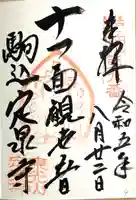 奉拝
令和五年
八月廿二日
十一面観世音
駒込定泉寺